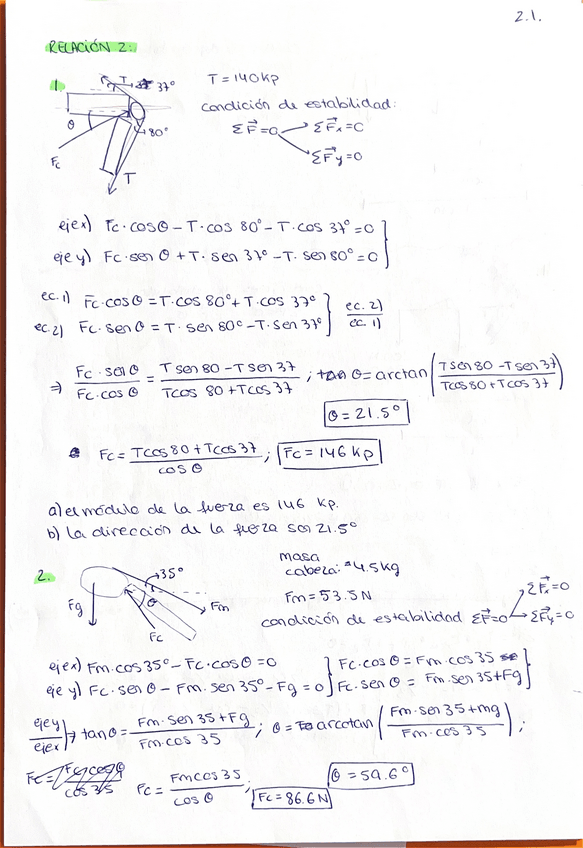 2.1.
RELACIÓN 2:
1. T 37º T = 140 Kp
condición de estabilidad:
θ 80º ΣF⃗=0 ΣF⃗x=0
ΣF⃗y=0
Fc T
eje x) Fc·cosθ - T·cos 80º - T·cos 37º = 0
eje y) Fc·sen θ + T·sen 37º - T·sen 80º = 0
ec.1) Fc·cosθ = T·cos 80º + T·cos 37º ec.2)
ec.2) Fc·senθ = T·sen 80º - T·sen 37º ec.1)
⇒ Fc·senθ / Fc·cosθ = T sen 80 - T sen 37 / T cos 80 + T cos 37 ; θ = arctan (T sen 80 - T sen 37 / T cos 80 + T cos 37)
θ = 21.5º
Fc = T cos 80 + T cos 37 / cos θ ; Fc = 146 Kp
a) el módulo de la fuerza es 146 Kp.
b) la dirección de la fuerza son 21.5º
2. 35º masa
cabeza: 4.5 kg
Fg θ Fm Fm = 53.5 N
Fc condición de estabilidad ΣF⃗=0 ΣF⃗x=0 ΣF⃗y=0
eje x) Fm·cos 35º - Fc·cosθ = 0 Fc·cosθ = Fm·cos 35
eje y) Fc·sen θ - Fm·sen 35º - Fg = 0 Fc·sen θ = Fm·sen 35 + Fg
eje y / eje x ⇒ tanθ = Fm·sen 35 + Fg / Fm·cos 35 ; θ = arcotan (Fm·sen 35 + mg / Fm·cos 35) ;
Fc = Fm cos 35 / cos θ ; θ = 59.6º
Fc = 86.6 N